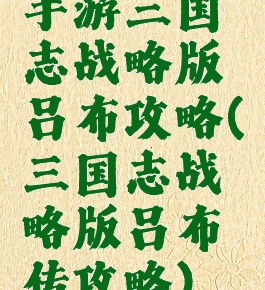 手游三国
志战略版
吕布攻略(
三国志战
略版吕布
传攻略)